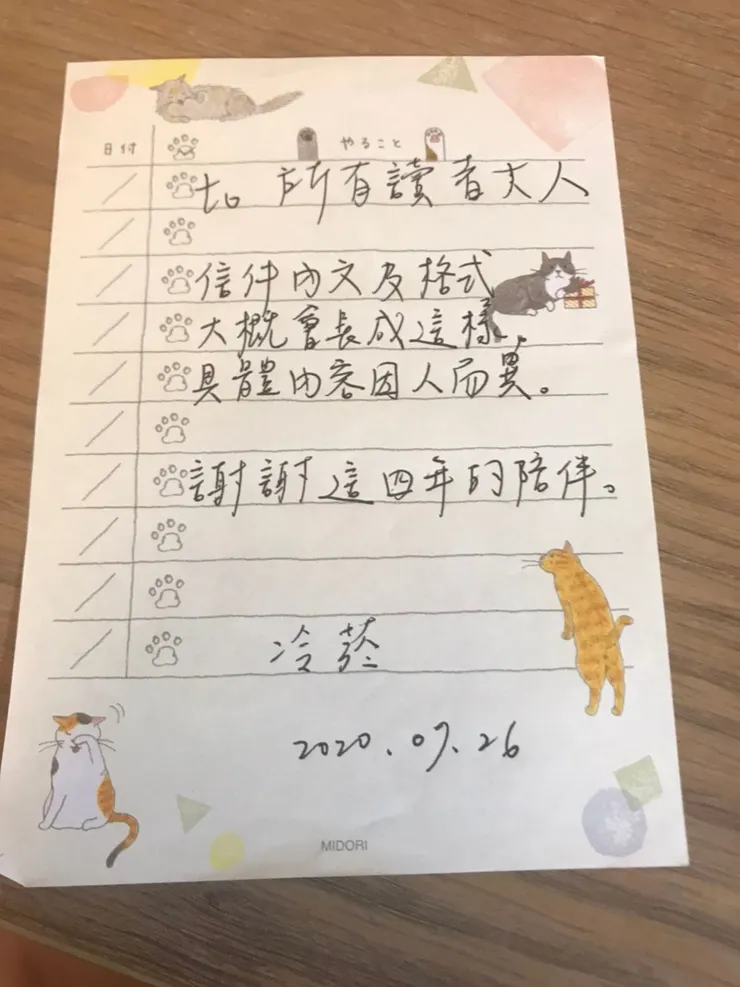 日付 やること
to 所有讀者大人
信件內文及格式
大概會長成這樣，
具體內容因人而異。
謝謝這四年的陪伴。
冷
2020.07.26
MIDORI